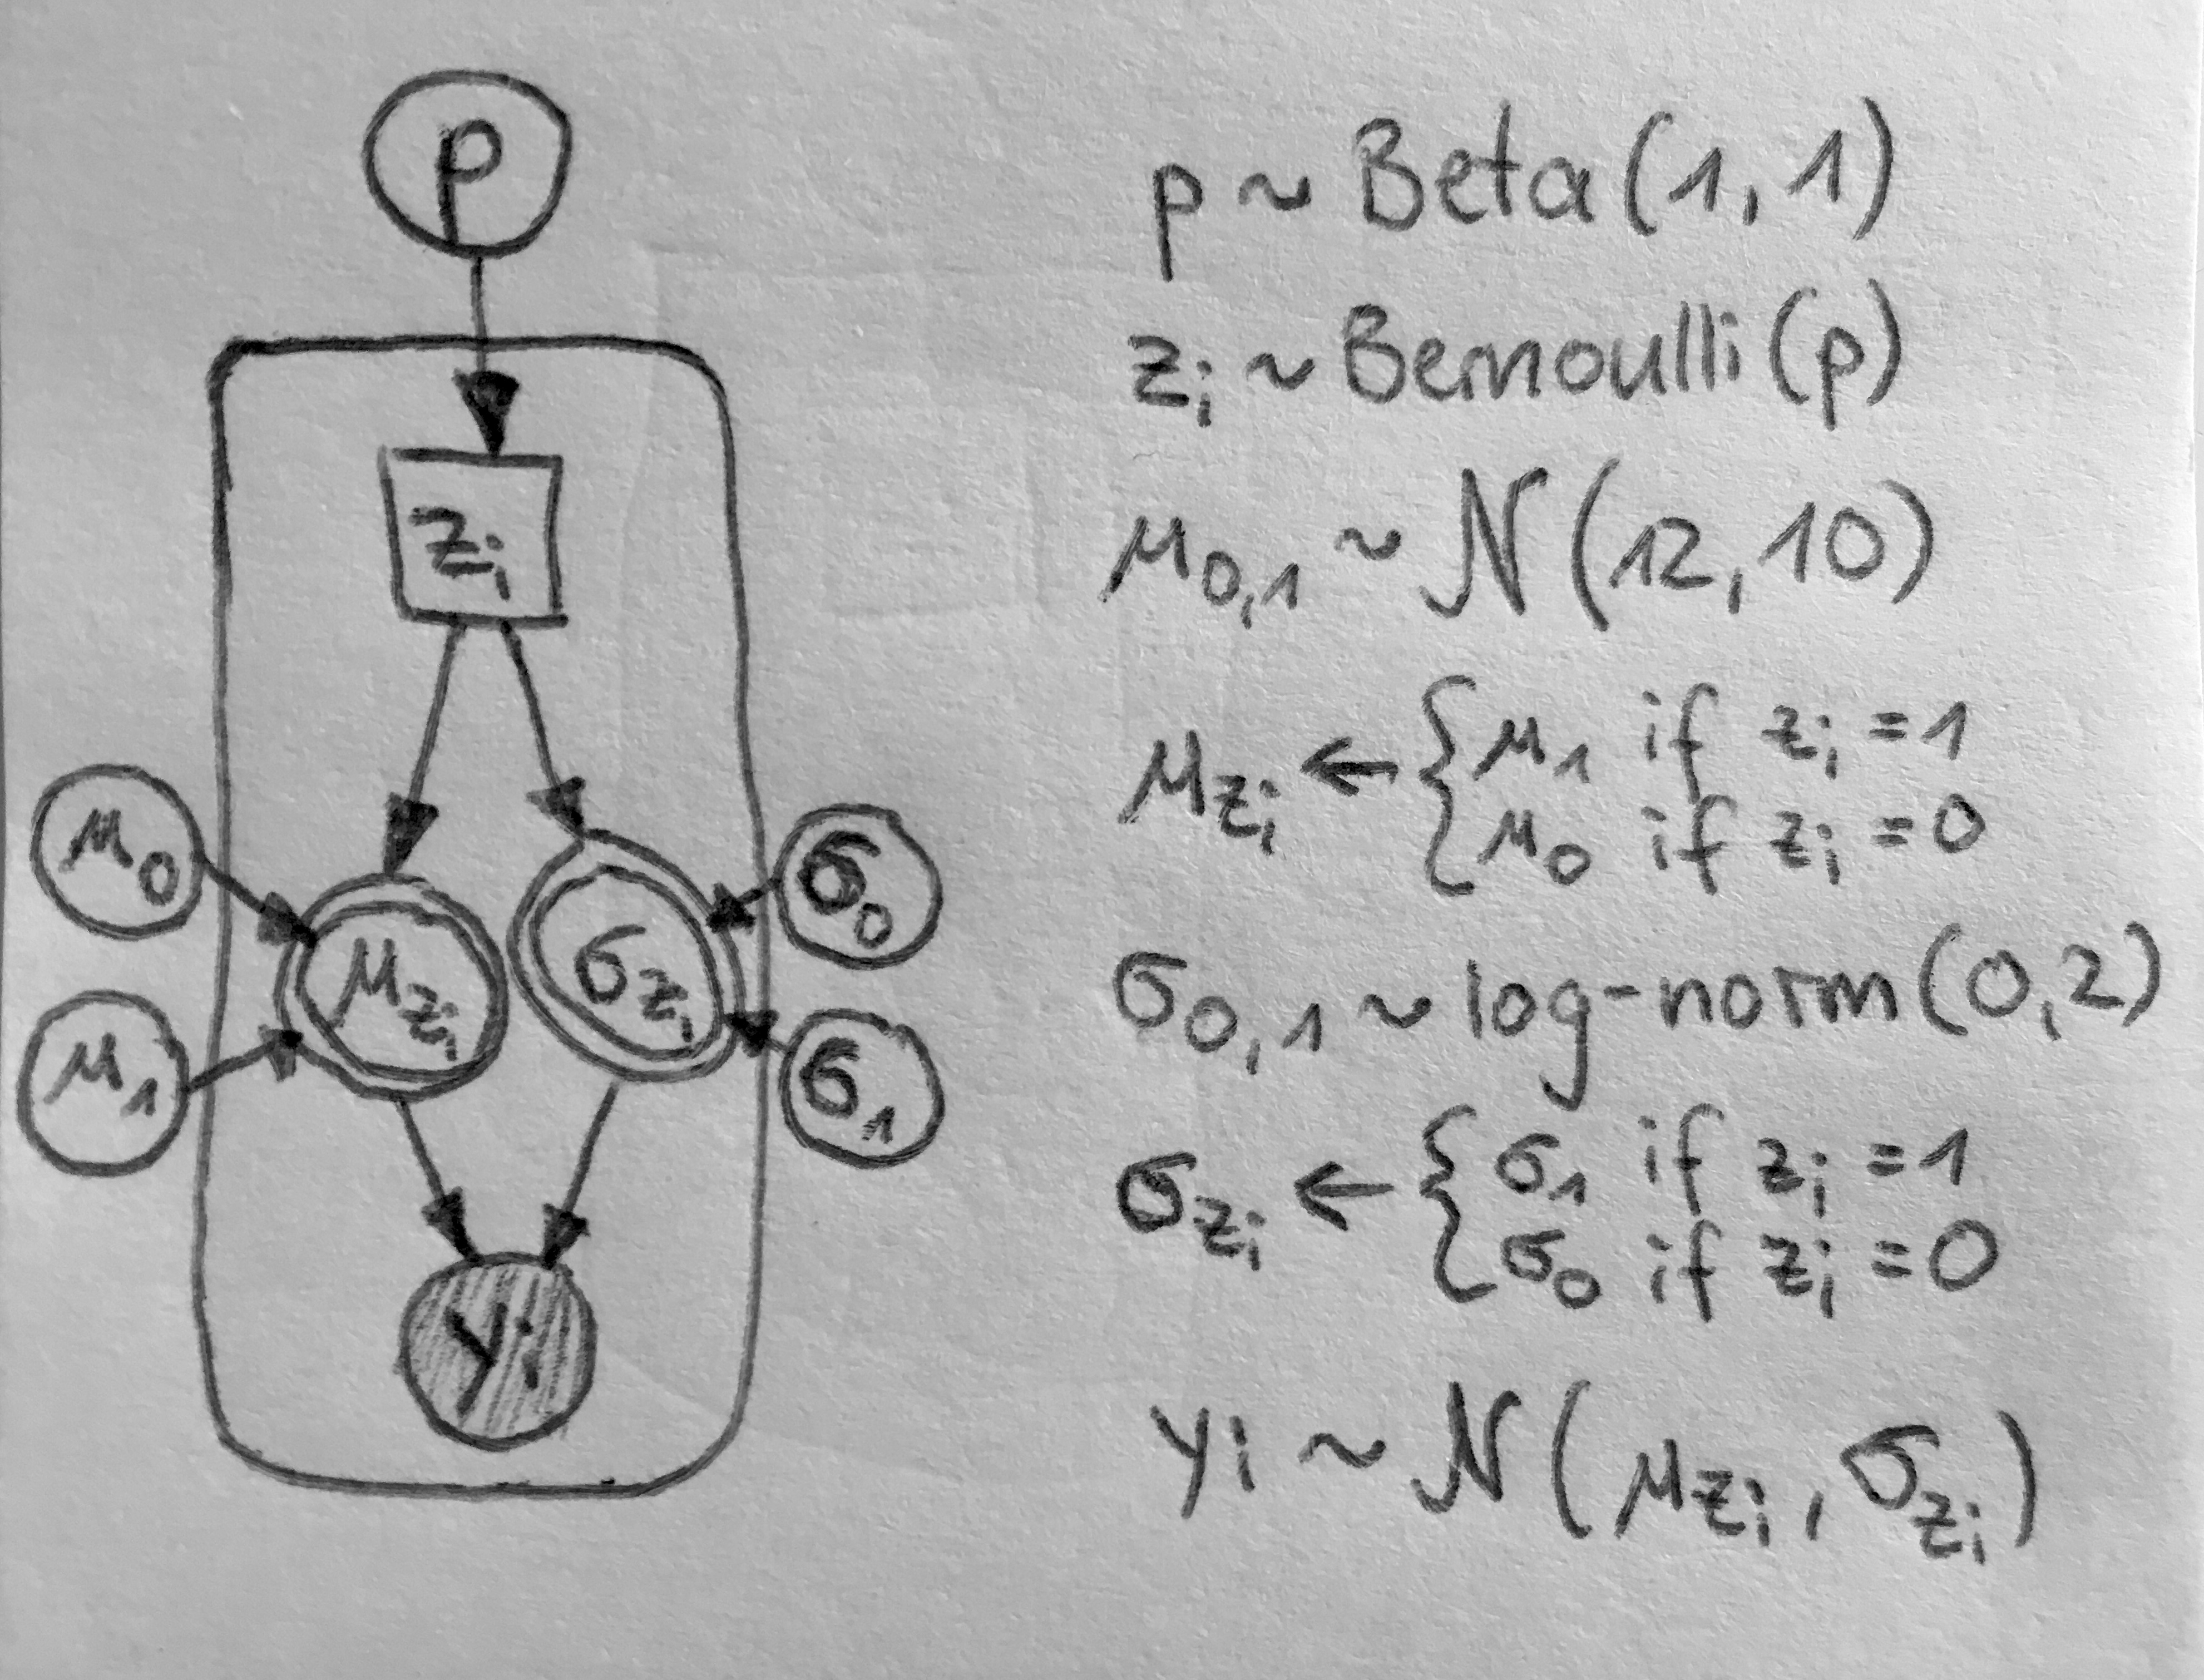 p
z_i
μ_0
μ_1
μ_{z_i}
σ_{z_i}
σ_0
σ_1
y_i
p ~ Beta(1,1)
z_i ~ Bernoulli(p)
μ_{0,1} ~ N(12,10)
μ_{z_i} ← { μ_1 if z_i = 1
μ_0 if z_i = 0
σ_{0,1} ~ log-norm(0,2)
σ_{z_i} ← { σ_1 if z_i = 1
σ_0 if z_i = 0
y_i ~ N(μ_{z_i}, σ_{z_i})